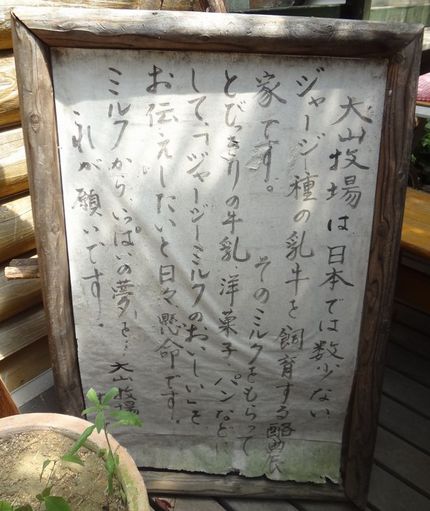 大山牧場は日本では数少ない
ジャージー種の乳牛を飼育する酪農
家です。 そのミルクをもらって
とびっきりの牛乳、洋菓子、パンなどに
して、「ジャージーミルクのおいしい」を
お伝えしたいと日々懸命です。
ミルクから、いっぱいの夢を…
これが願いです。 大山牧場